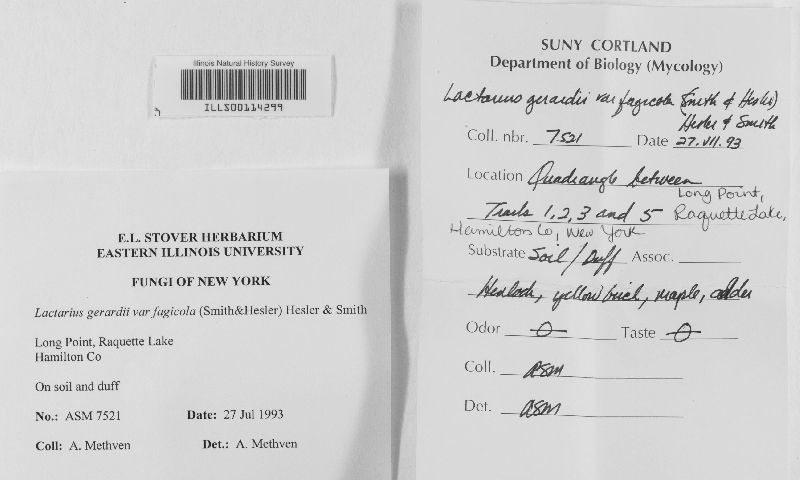 Illinois Natural History Survey
ILLS00114299
E.L. STOVER HERBARIUM
EASTERN ILLINOIS UNIVERSITY
FUNGI OF NEW YORK
Lactarius gerardii var fagicola (Smith&Hesler) Hesler & Smith
Long Point, Raquette Lake
Hamilton Co
On soil and duff
No.: ASM 7521 Date: 27 Jul 1993
Coll: A. Methven Det.: A. Methven
SUNY CORTLAND
Department of Biology (Mycology)
Lactarius gerardii var fagicola (Smith & Hesler)
Hesler & Smith
Coll. nbr. 7521 Date 27.VII.93
Location Quadrangle between
Long Point,
Trails 1, 2, 3 and 5 Raquette Lake,
Hamilton Co, New York
Substrate Soil/Duff Assoc.
Hemlock, yellow birch, maple, alder
Odor O Taste O
Coll. ASM
Det. ASM